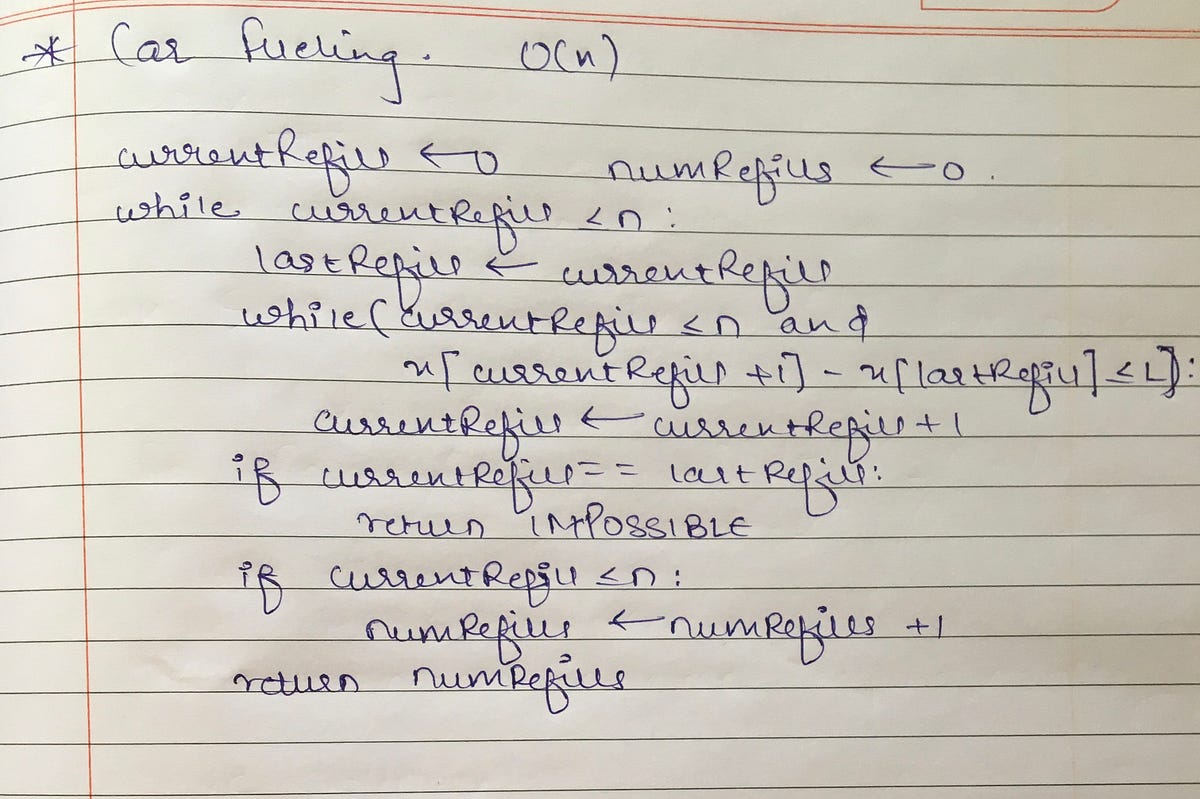 * Car fueling. O(n)
currentRefill ← 0 numRefills ← 0.
while currentRefill < n :
lastRefill ← currentRefill
while (currentRefill ≤ n and
x[currentRefill +1] - x[lastRefill] ≤ L):
currentRefill ← currentRefill + 1
if currentRefill == lastRefill:
return IMPOSSIBLE
if currentRefill ≤ n :
numRefills ← numRefills +1
return numRefills